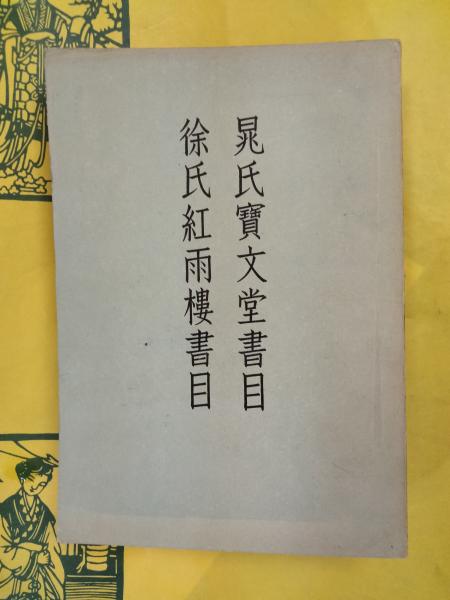 晁氏寶文堂書目
徐氏紅雨樓書目